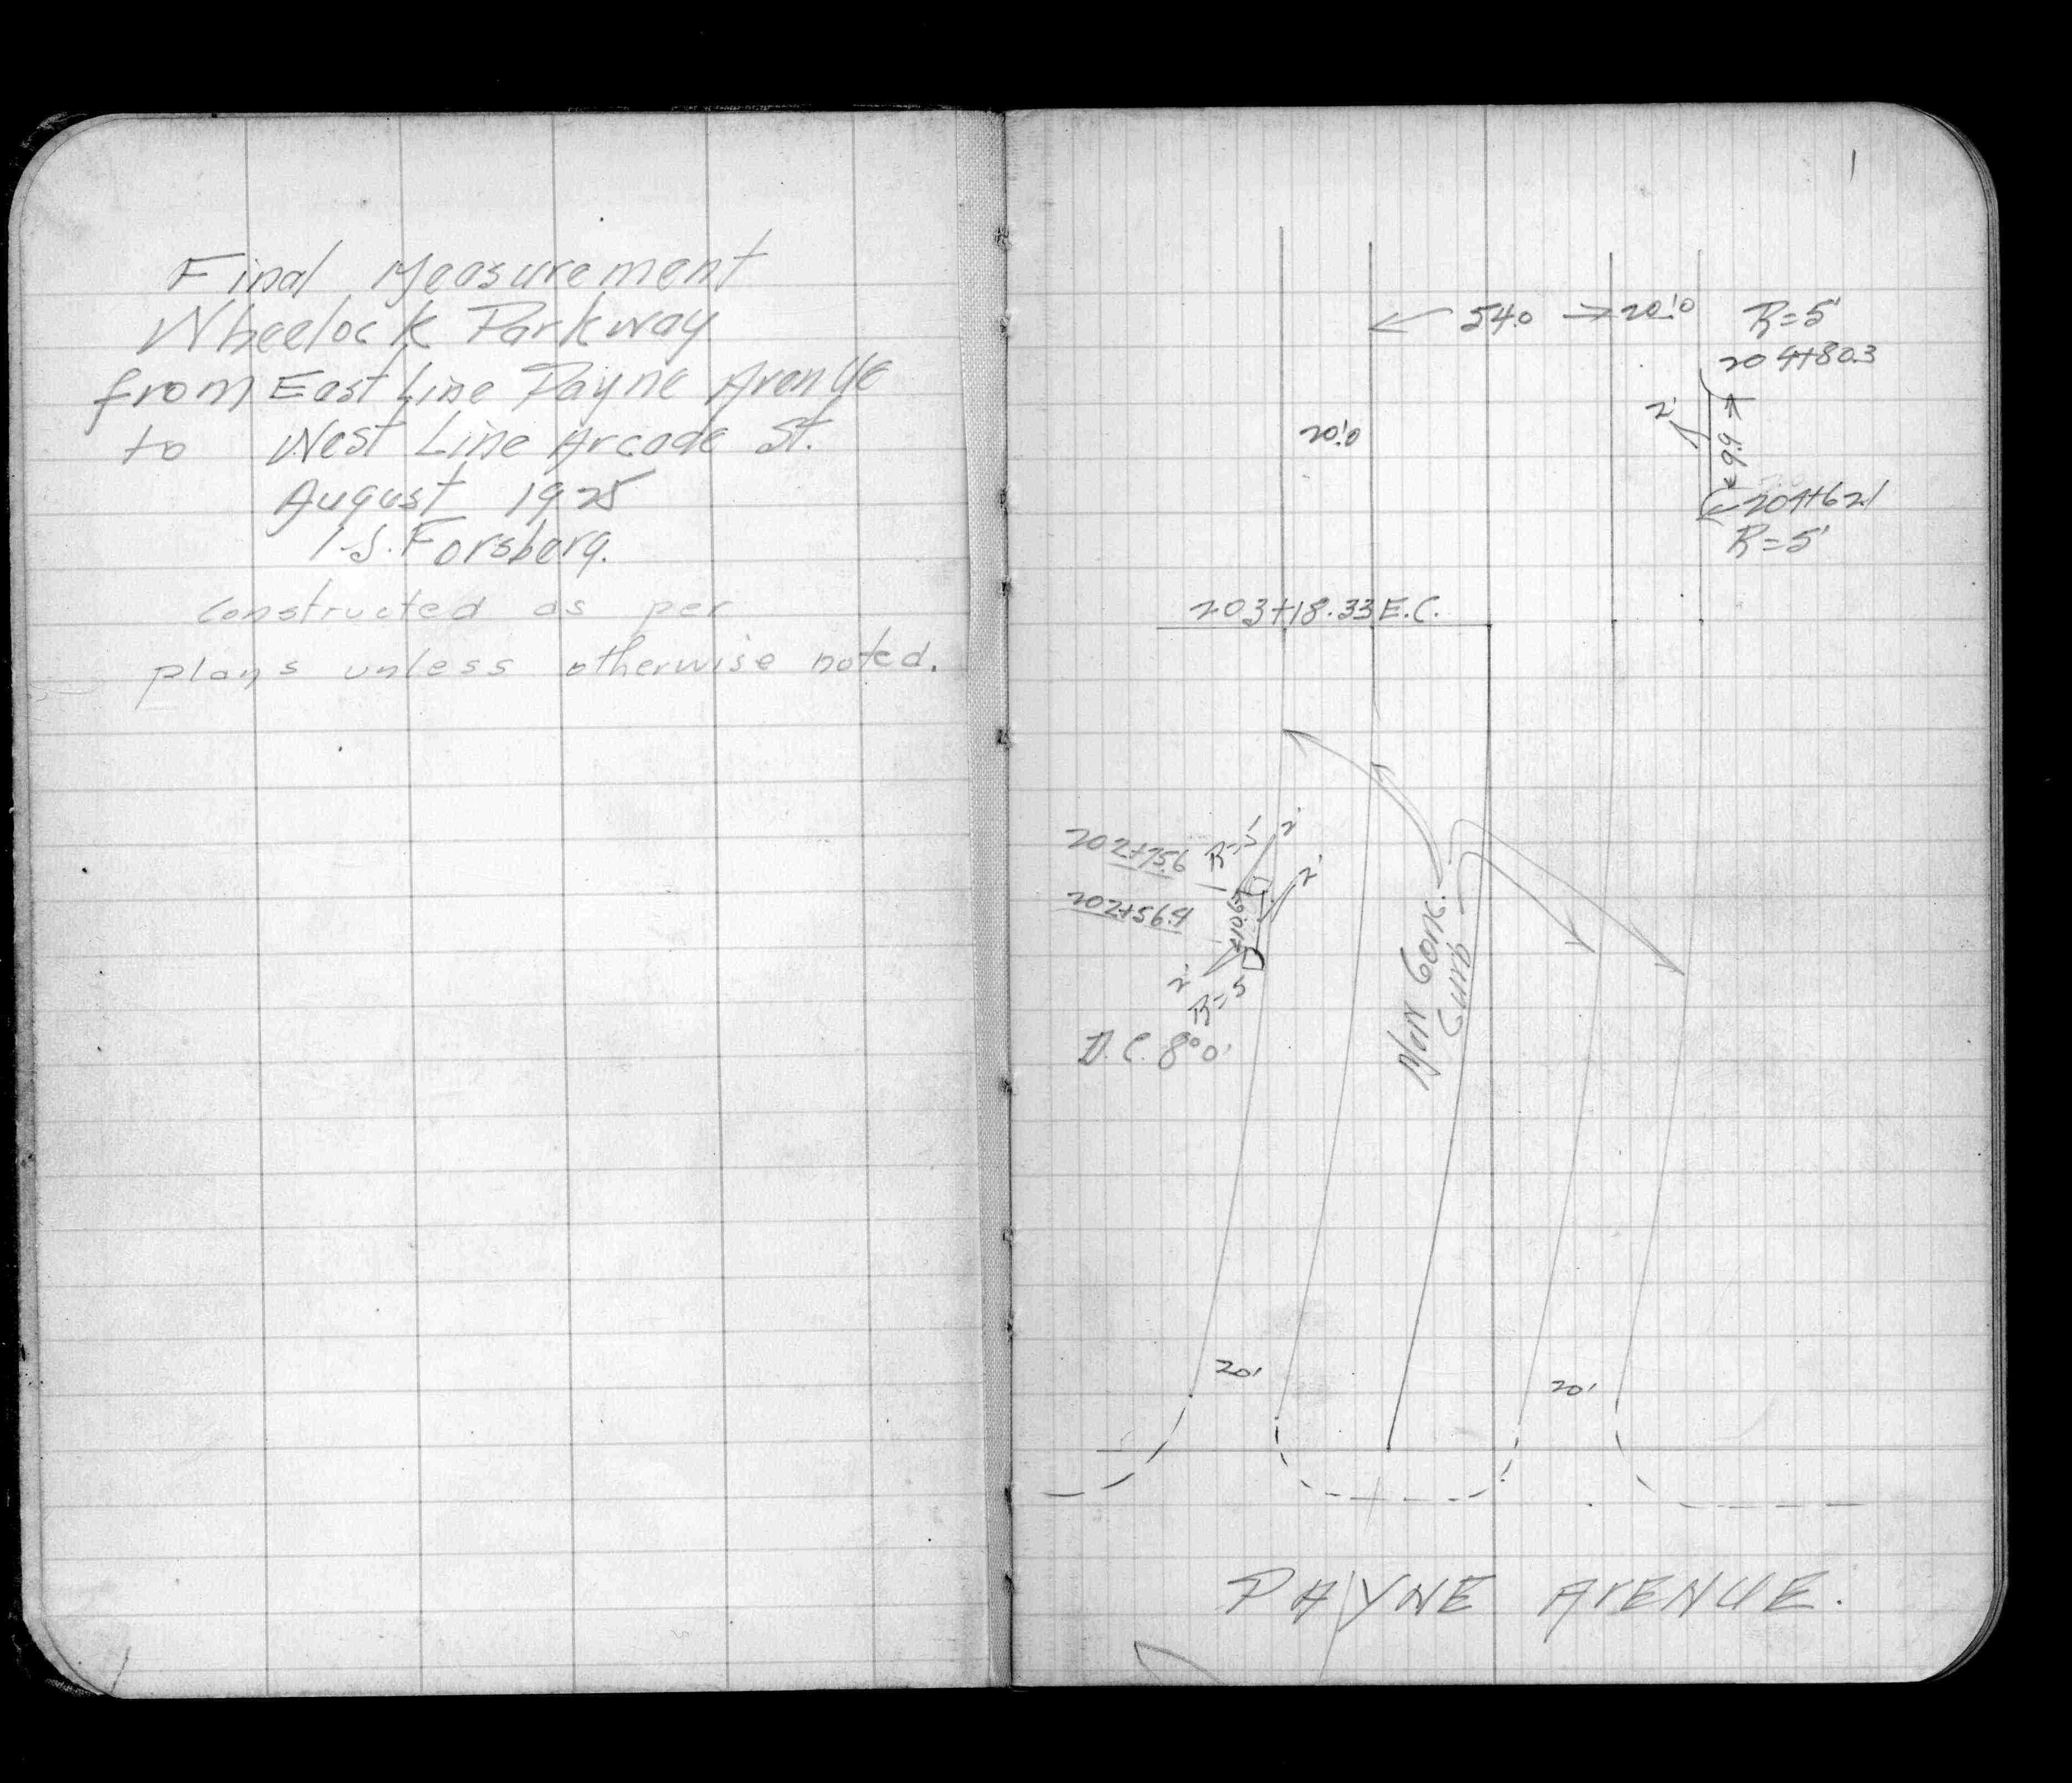 Final Measurement
Wheelock Parkway
from East Line Payne Avenue
to West Line Arcade St.
August 1925
I.S. Forsberg.
Constructed as per
plans unless otherwise noted.
1
54.0
20'.0
R=5'
204+80.3
2'
20'.0
9.9
204+62.1
R=5'
203+18.33 E.C.
2'
202+75.6
R=5'
2'
202+56.4
10.67
2'
R=5
D.C. 8°0'
Conc.
Curb
20'
20'
PAYNE AVENUE.